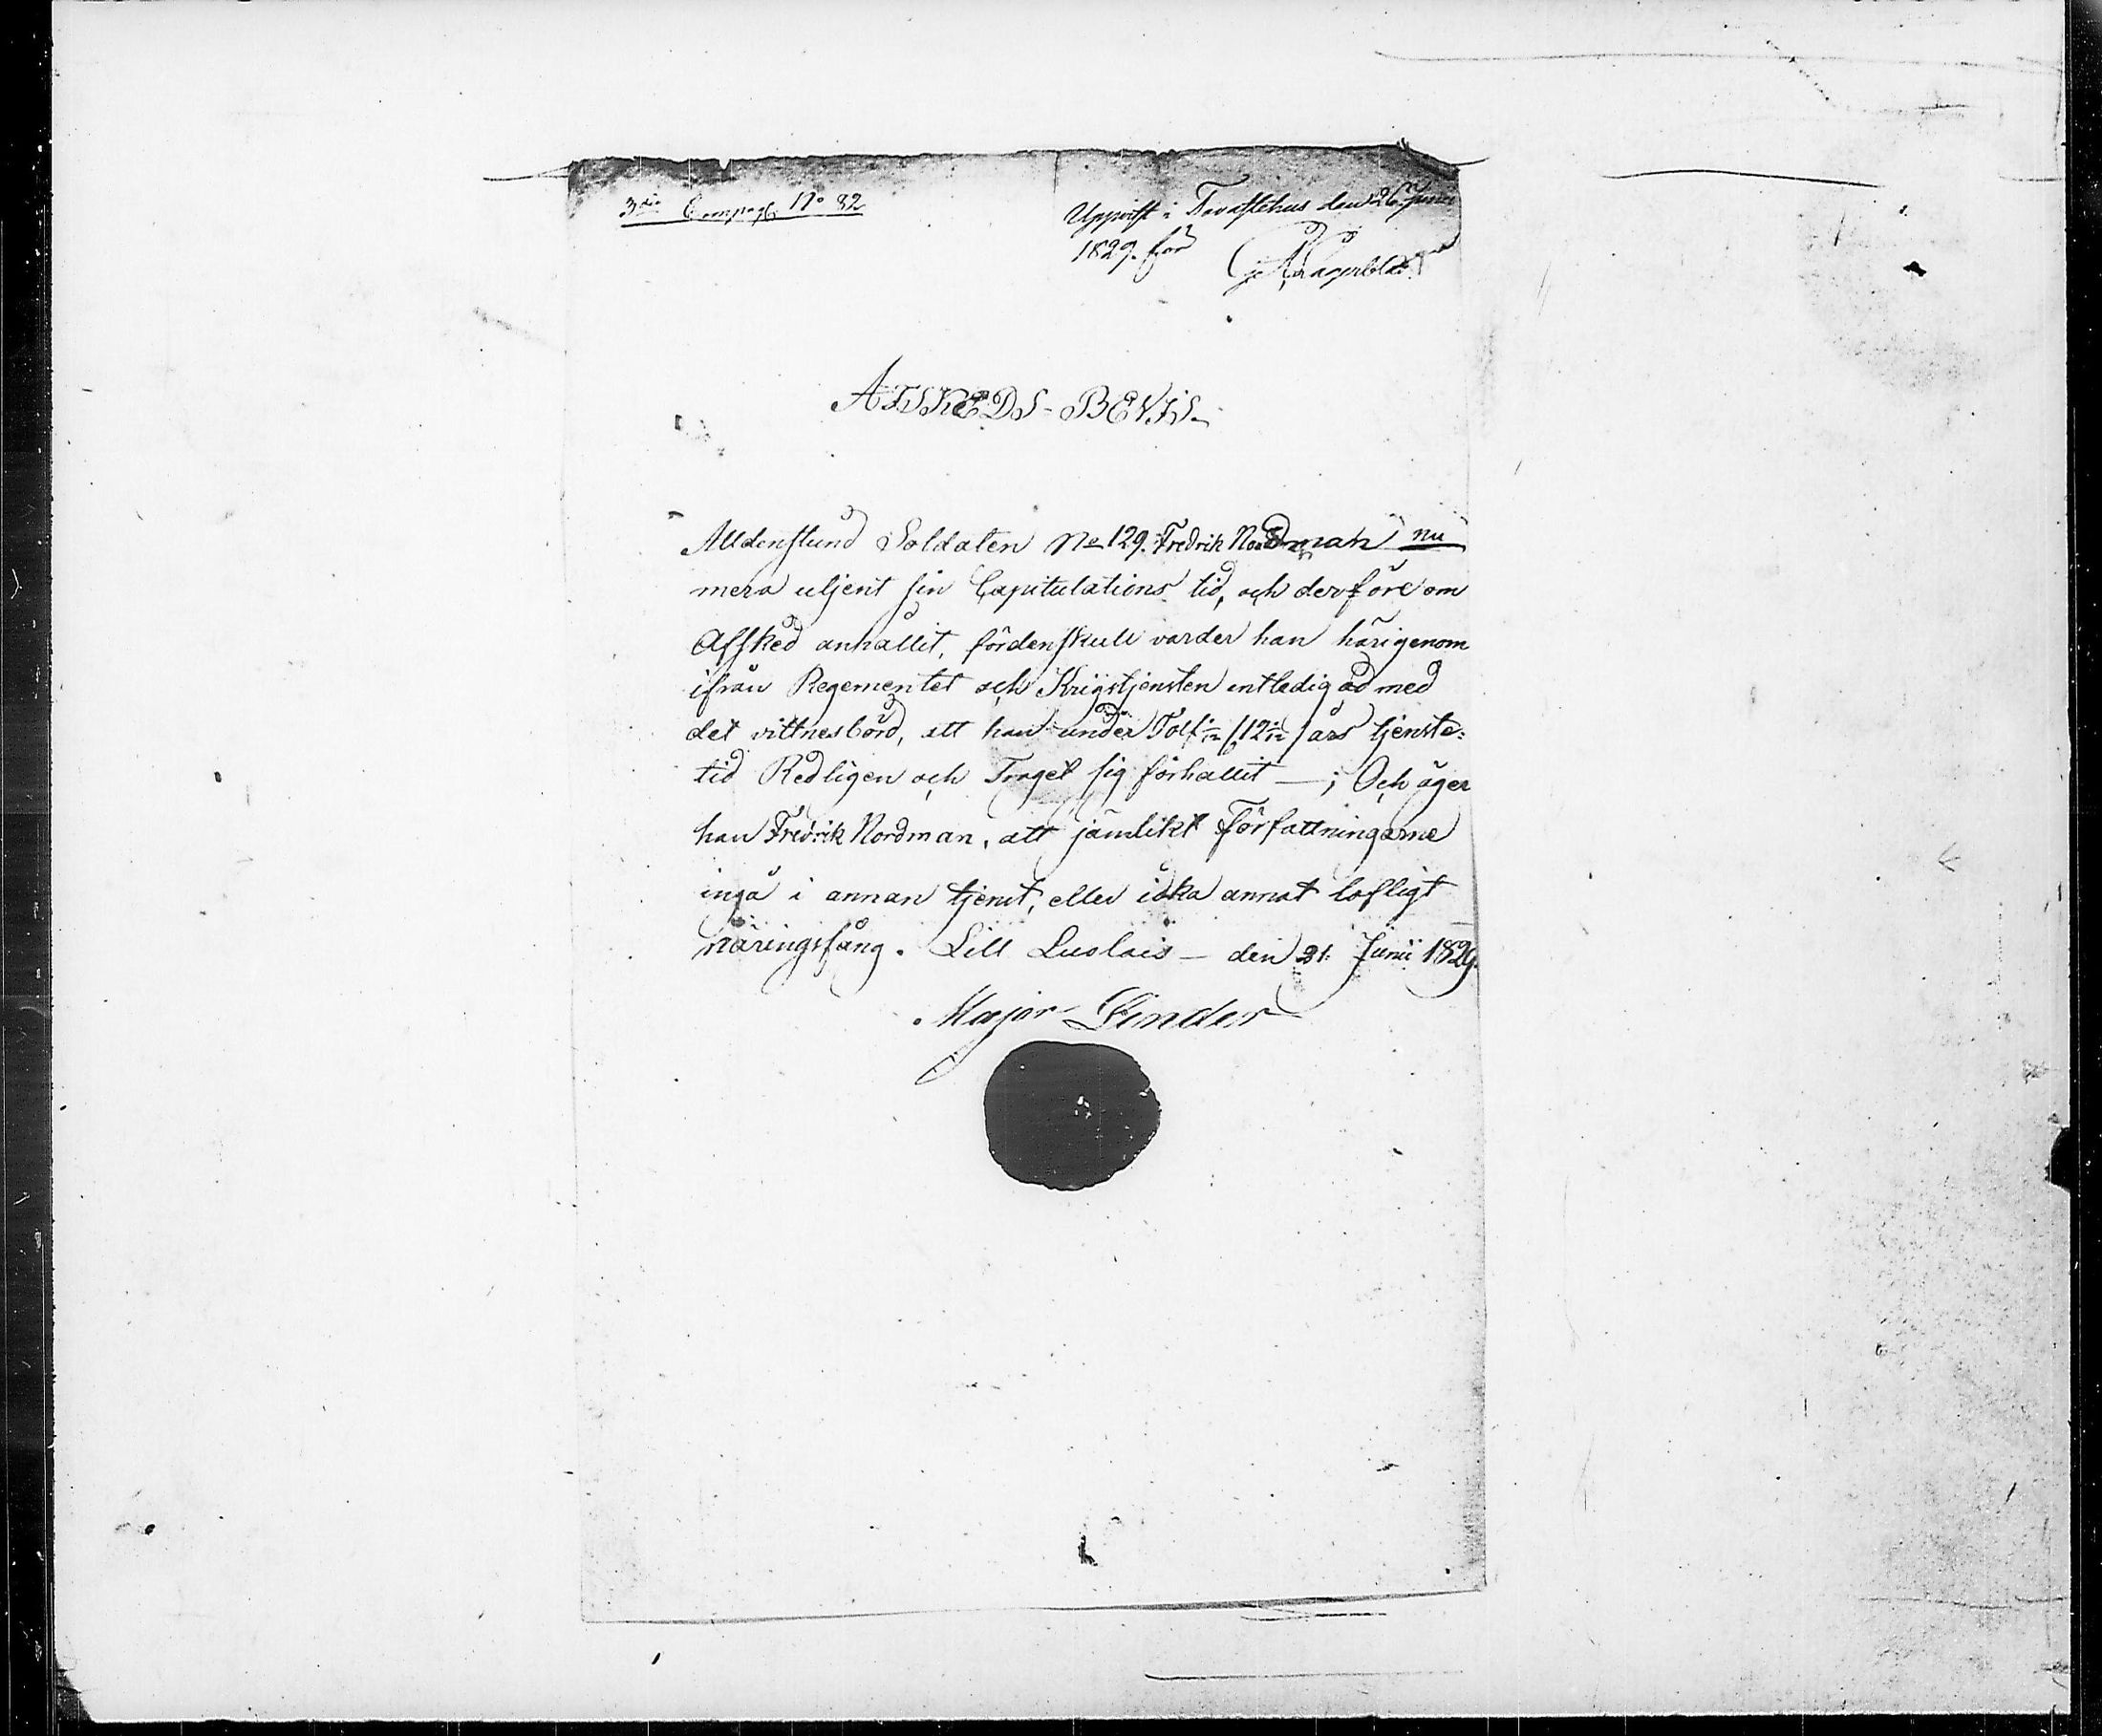 3die Compag. No 82
Uppvist i Tavastehus den 26 Junii
1829. för
AFSKEDS-BEVIS
Alldenstund Soldaten No 129. Fredrik Nordman nu
mera utjent sin Capitulations tid, och derföre om
Afsked anhållit, fördenskull varder han härigenom
ifrån Regementet och Krigstjensten entledigad med
det vittnesbörd, att han under Tolf års tjenste-
tid Redligen och Troget sig förhållit —; Och äger
han Fredrik Nordman, att jämlikt Författningarne
ingå i annan tjenst, eller idka annat lofligt
näringsfång. Lill Luolais — den 21. Junii 1829.
Major Linder